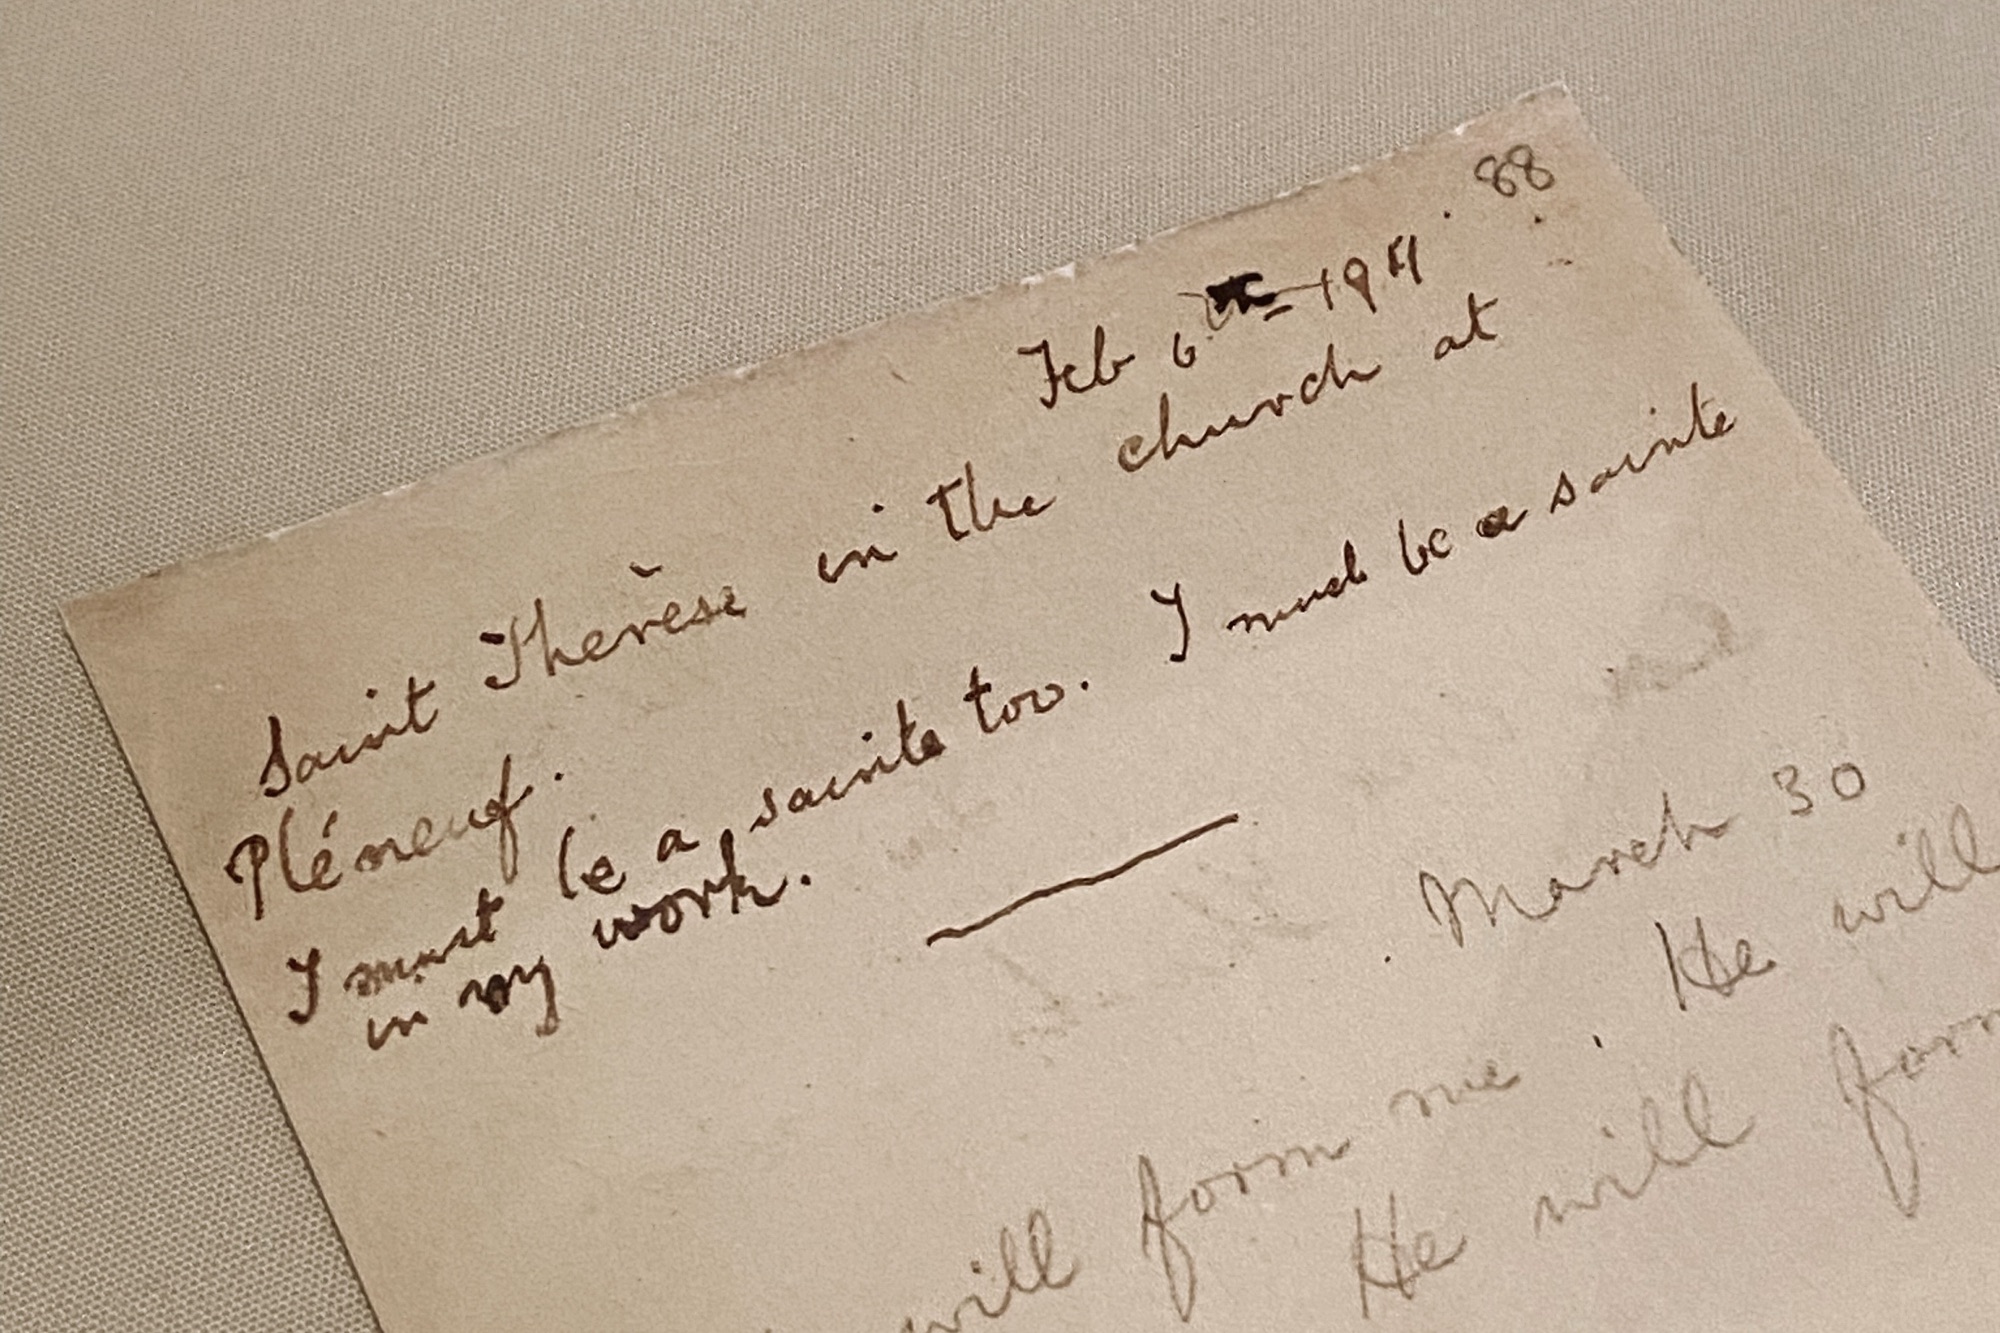 88
Feb 6th 1941
Saint Thérèse in the church at
Pléneuf.
I must be a sainte too. I must be a sainte
in my work.
March 30
will form me. He will
He will form